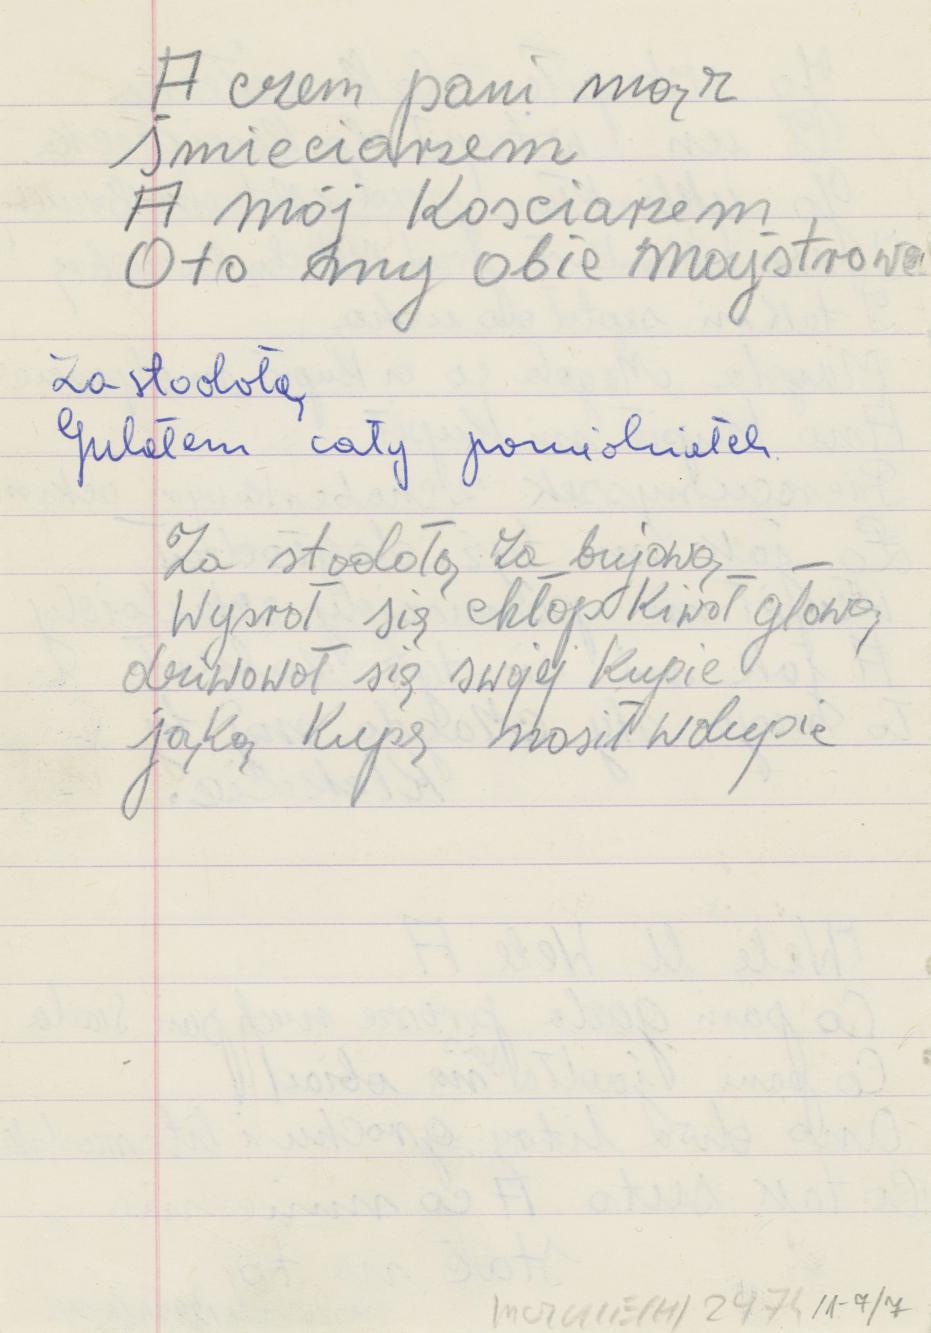 A czem pani mąż
śmieciarzem
A mój Kosciarzem
Oto my obie majstrowe
Za stodołą
Gulałem cały poniedziałek
Za stodołą za bujową
Wysroł się chłop Kiwoł głową
dziwowoł się swojej Kupie
jąką Kupę nosił w dupie
11-7/7